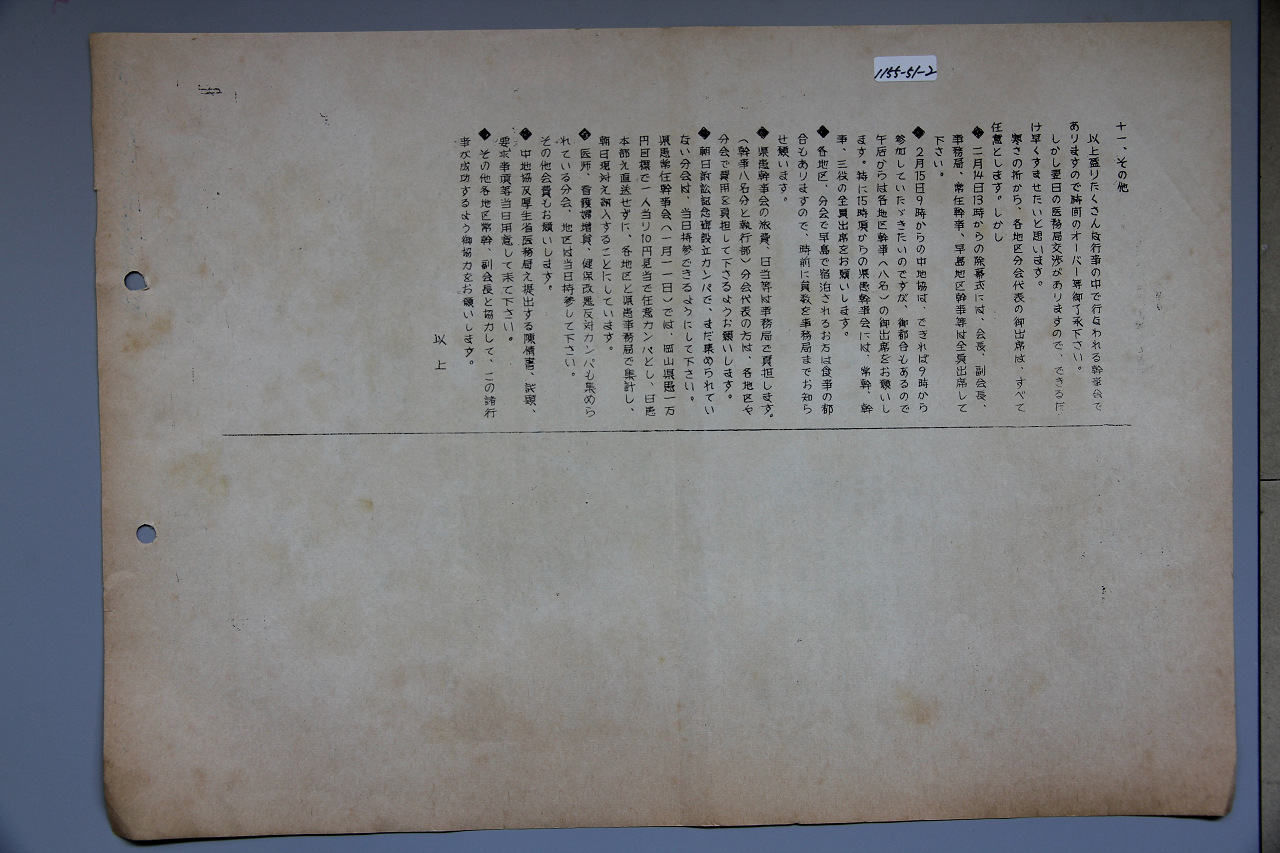 1155-51-2
十一、その他
以上盛りたくさんな行事の中で行なわれる幹事会で
ありますので時間のオーバー等御了承下さい。
しかし翌日の医務局交渉がありますので、できるだ
け早くすませたいと思います。
寒さの折から、各地区分会代表の御出席は、すべて
任意とします。しかし
◆ 二月14日13時からの除幕式には、会長、副会長、
事務局、常任幹事、早島地区幹事等は全員出席して
下さい。
◆ 2月15日9時からの中地協は、できれば9時から
参加していたゞきたいのですが、御都合もあるので
午后からは各地区幹事(八名)の御出席をお願いし
ます。特に15時頃からの県患幹事会には、常幹、幹
事、三役の全員出席をお願いします。
◆ 各地区、分会で早島で宿泊されるお方は食事の都
合もありますので、時前に員数を事務局までお知ら
せ願います。
◆ 県患幹事会の旅費、日当等は事務局で負担します。
(幹事八名分と執行部)分会代表の方は、各地区や
分会で費用を負担して下さるようお願いします。
◆ 朝日訴訟記念碑設立カンパで、まだ集められてい
ない分会は、当日持参できるようにして下さい。
県患常任幹事会(一月一一日)では、岡山県患一万
円目標で一人当り10円見当で任意カンパとし、日患
本部え直送せずに、各地区と県患事務局で集計し、
朝日現対え納入することにしています。
◆ 医師、看護婦増員、健保改悪反対カンパも集めら
れている分会、地区は当日持参して下さい。
その他会費もお願いします。
◆ 中地協及厚生省医務局え提出する陳情書、議題、
要求事項等当日用意して来て下さい。
◆ その他各地区常幹、副会長と協力して、この諸行
事が成功するよう御協力をお願いします。
以上